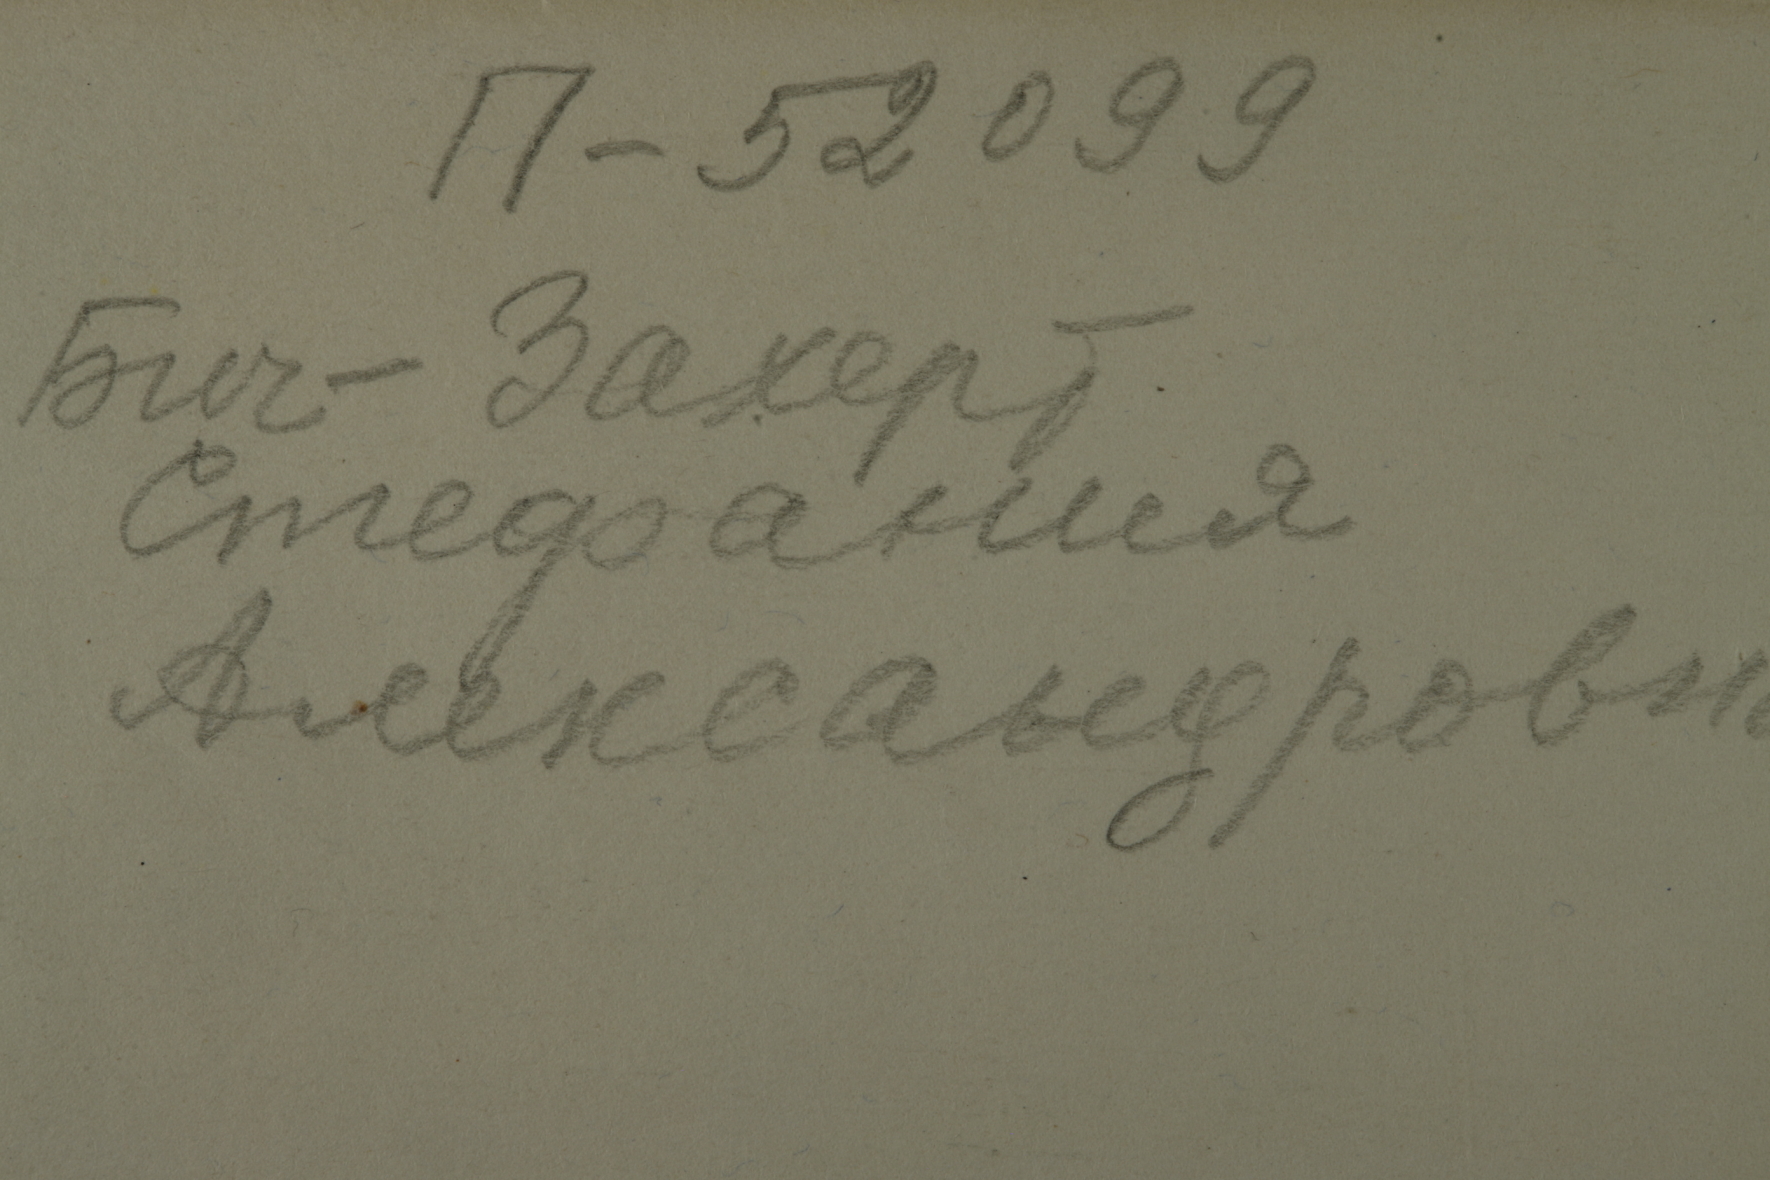 П-52099
Бич-Захерт
Стефания
Александровна